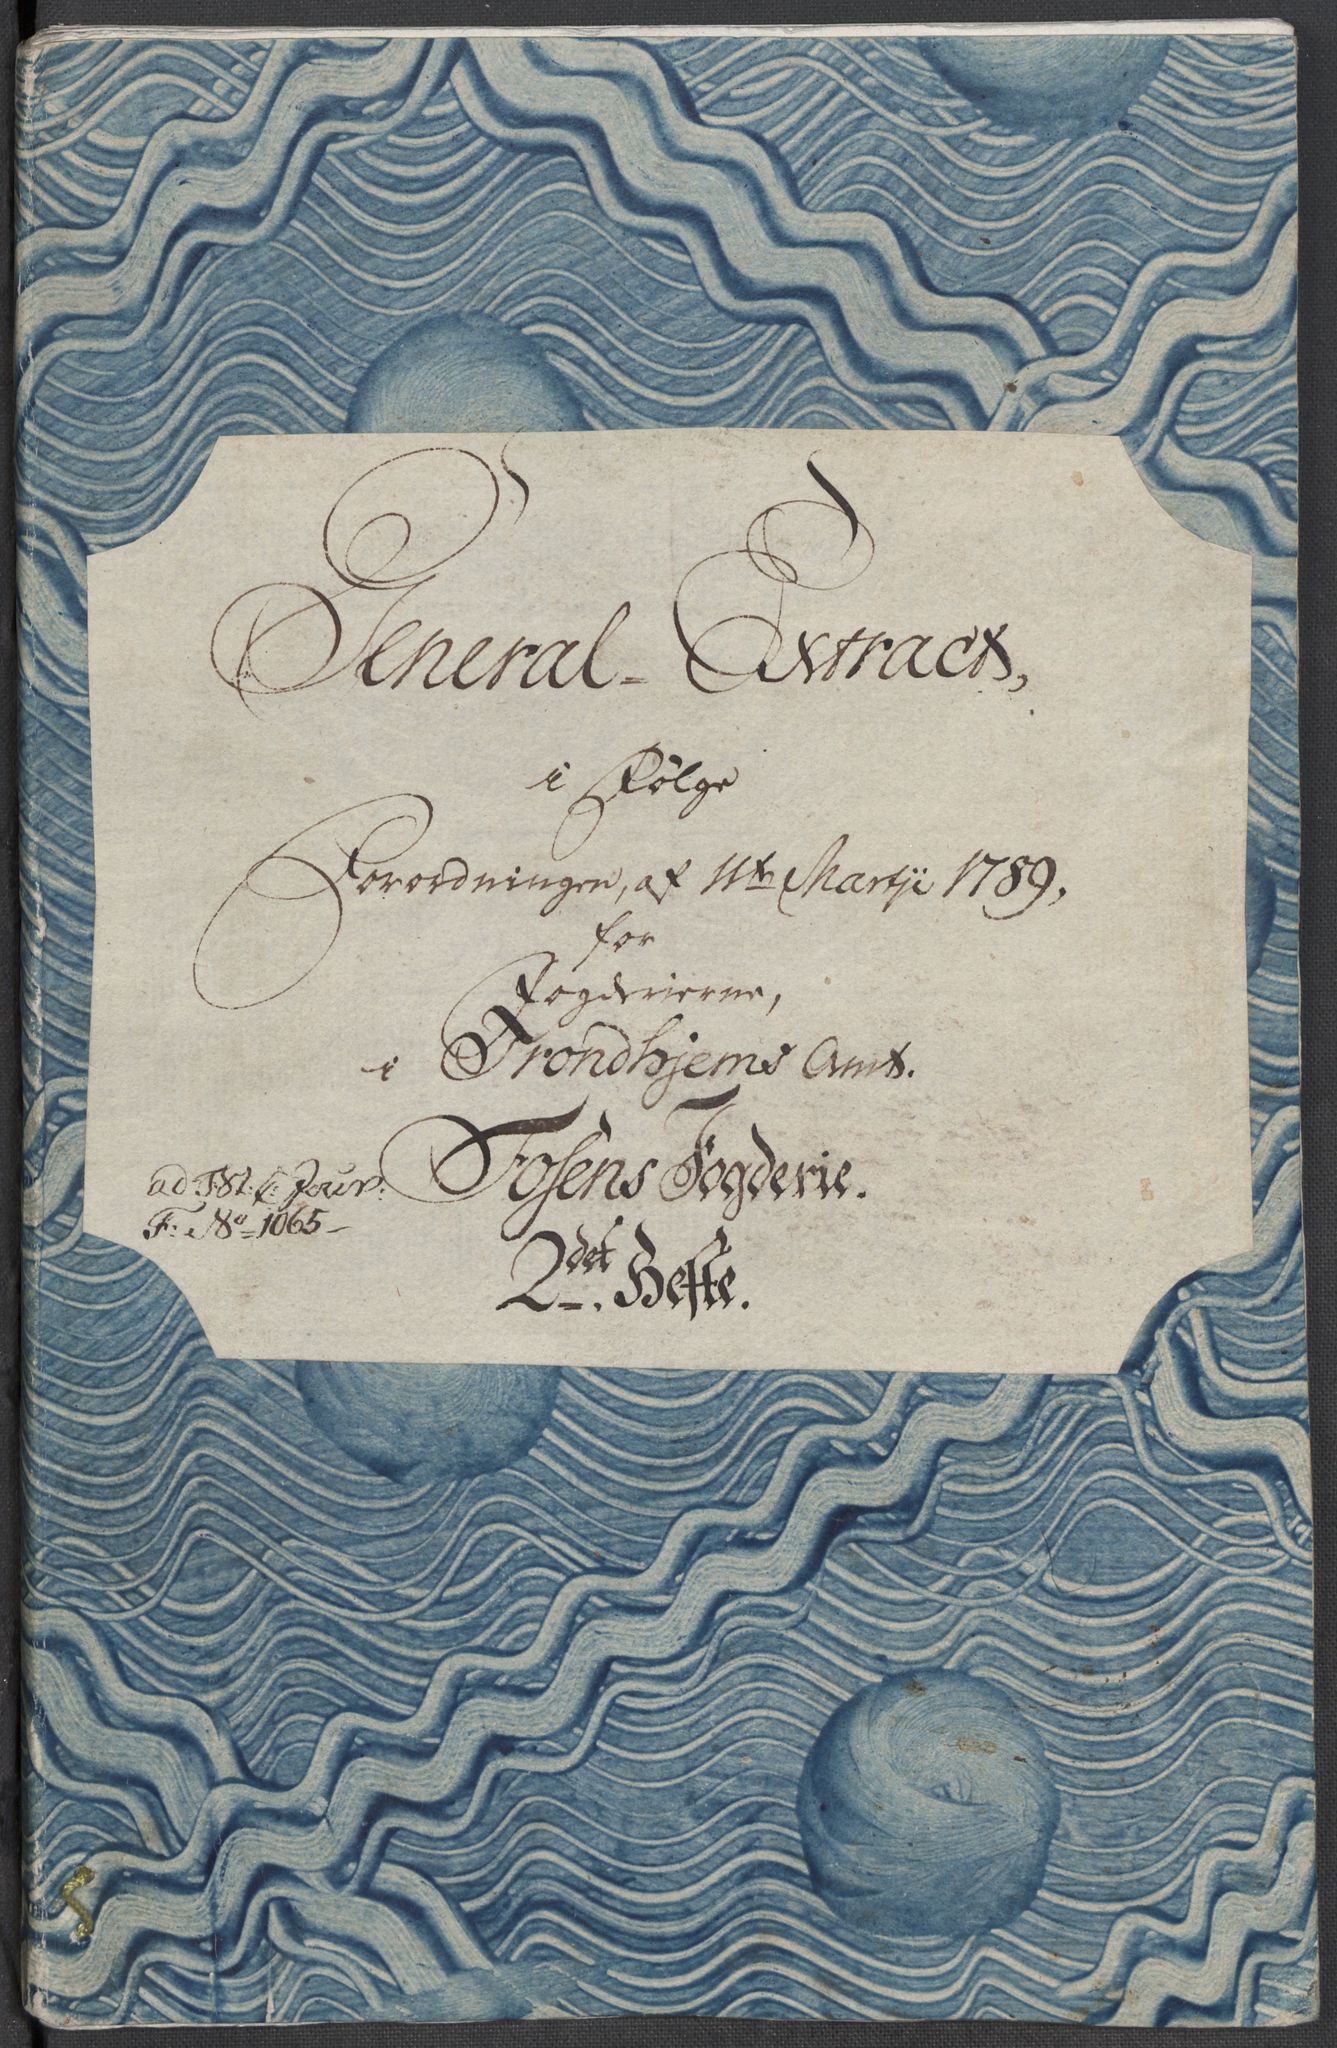 General-Extract,
i Følge
Forordningen, af 11te Martji 1789,
for
Fogderierne,
i Trondhjems Amt.
Fosens Fogderie.
2det Hefte.
ad Jour:
F: No 1065